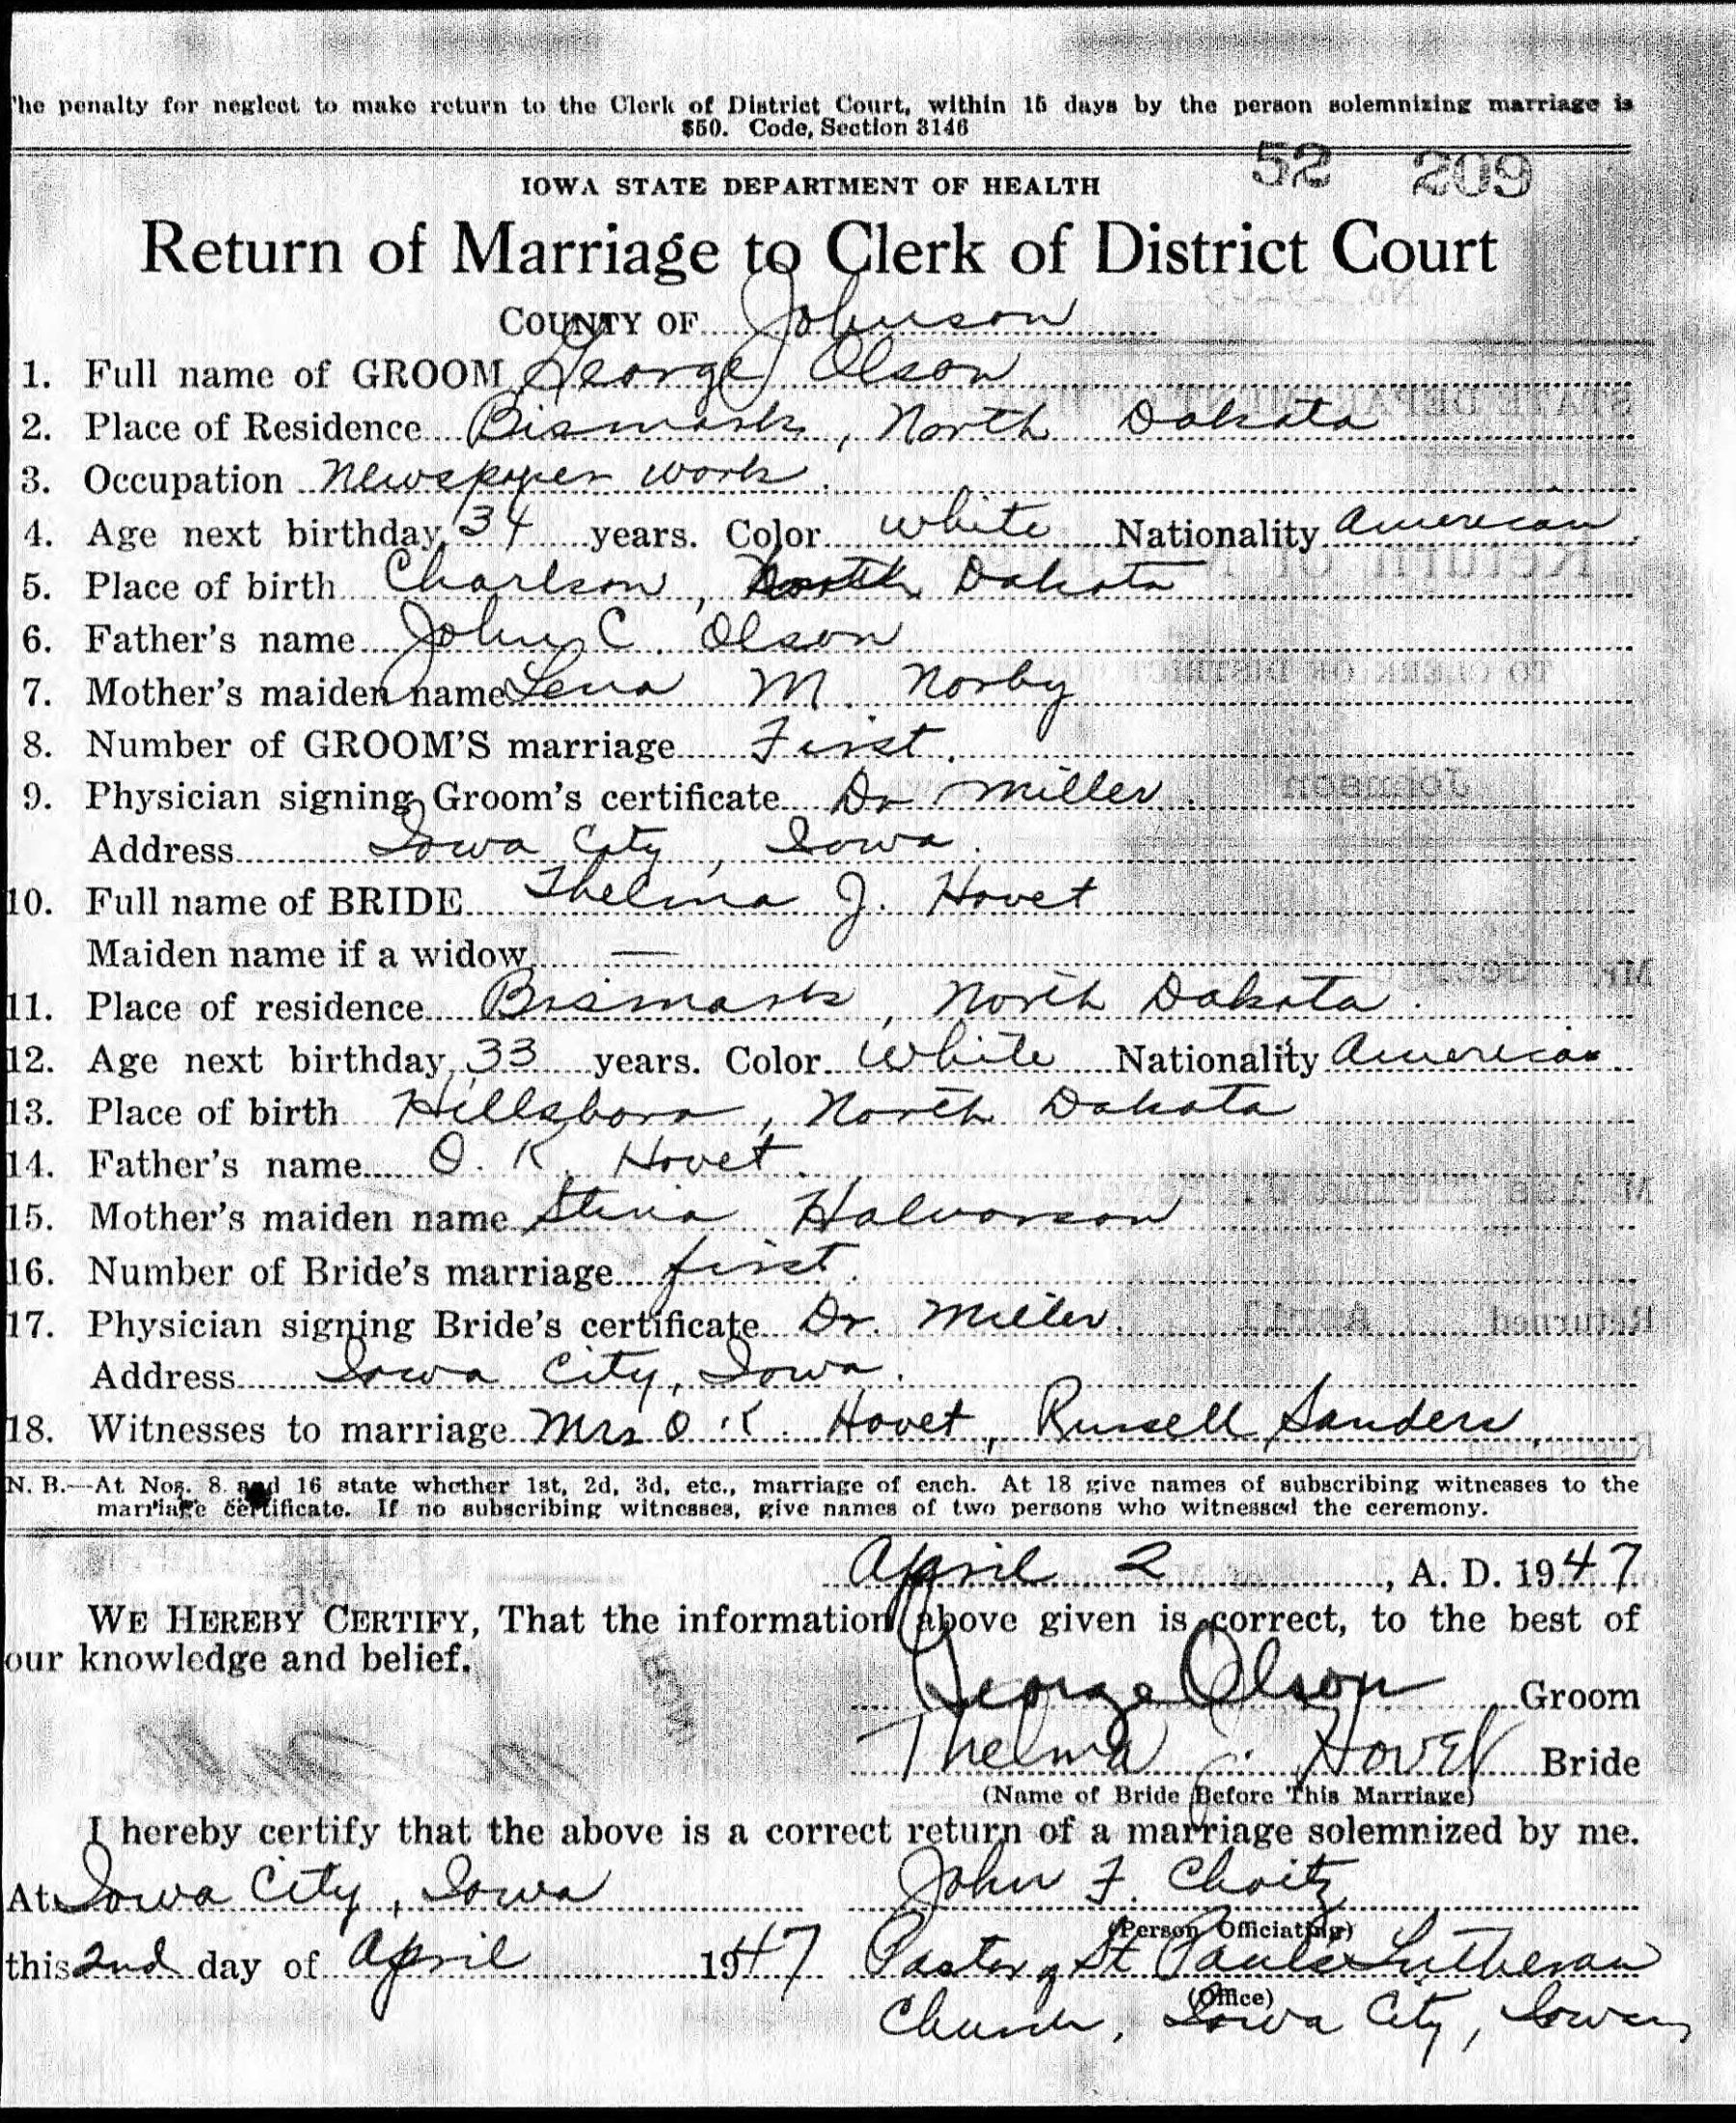 The penalty for neglect to make return to the Clerk of District Court, within 15 days by the person solemnizing marriage is
$50. Code, Section 3146
52 209
IOWA STATE DEPARTMENT OF HEALTH
Return of Marriage to Clerk of District Court
COUNTY OF Johnson
1. Full name of GROOM George Olson
2. Place of Residence Bismark, North Dakota
3. Occupation Newspaper work.
4. Age next birthday 34 years. Color white Nationality American
5. Place of birth Charlson, North Dakota
6. Father's name John C. Olson
7. Mother's maiden name Lena M. Norby
8. Number of GROOM'S marriage First.
9. Physician signing Groom's certificate Dr Miller.
Address Iowa City, Iowa.
10. Full name of BRIDE Thelma J. Hovet
Maiden name if a widow —
11. Place of residence Bismark, North Dakota.
12. Age next birthday 33 years. Color White Nationality American
13. Place of birth Hillsboro, North Dakota
14. Father's name O. K. Hovet.
15. Mother's maiden name Stina Halvorson
16. Number of Bride's marriage first.
17. Physician signing Bride's certificate Dr. Miller.
Address Iowa City, Iowa.
18. Witnesses to marriage Mrs O. K. Hovet, Russell Sanders.
N. B.—At Nos. 8 and 16 state whether 1st, 2d, 3d, etc., marriage of each. At 18 give names of subscribing witnesses to the
marriage certificate. If no subscribing witnesses, give names of two persons who witnessed the ceremony.
April 2, A. D. 1947
WE HEREBY CERTIFY, That the information above given is correct, to the best of
our knowledge and belief.
George Olson Groom
Thelma J. Hovet Bride
(Name of Bride Before This Marriage)
I hereby certify that the above is a correct return of a marriage solemnized by me.
At Iowa City, Iowa John F. Choitz
(Person Officiating)
this 2nd day of April 1947 Pastor of St Paul's Lutheran
(Office)
Church, Iowa City, Iowa